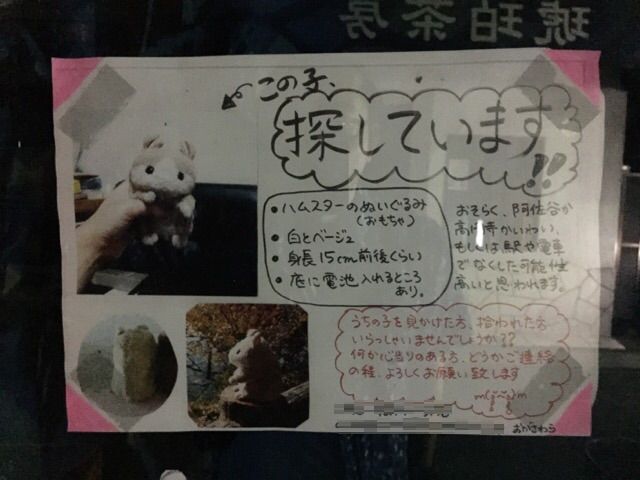 琥珀茶房
この子、
探しています!!
・ハムスターのぬいぐるみ
(おもちゃ)
・白とベージュ
・身長15cm前後くらい
・底に電池入れるところ
あり。
おそらく、阿佐谷か
高円寺かいわい、
もしくは駅や電車
でなくした可能性
高いと思われます。
うちの子を見かけた方、拾われた方
いらっしゃいませんでしょうか??
何か心当りのある方、どうかご連絡
の程、よろしくお願い致します
おがさわら